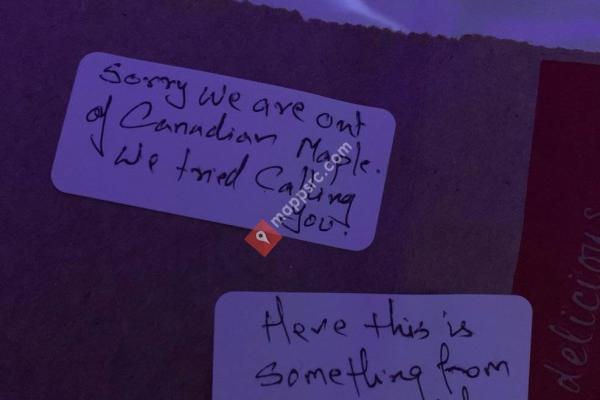 Sorry we are out
of Canadian Maple.
We tried Calling
you.
mappsrc.com
Here this is
something from
delicious